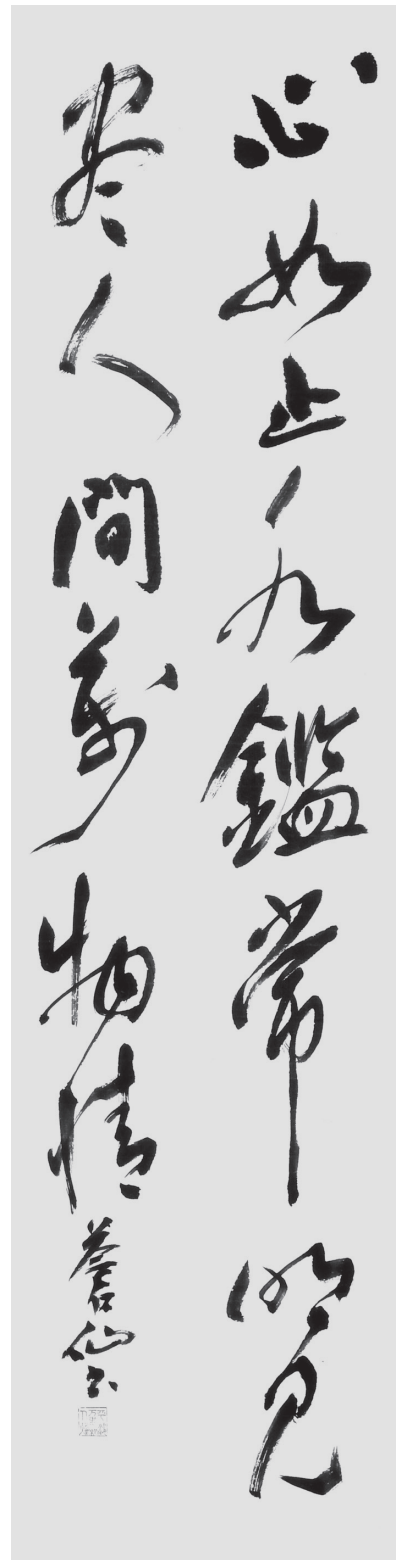 心如止水鑑常明見
盡人間萬物情
蒼仙書